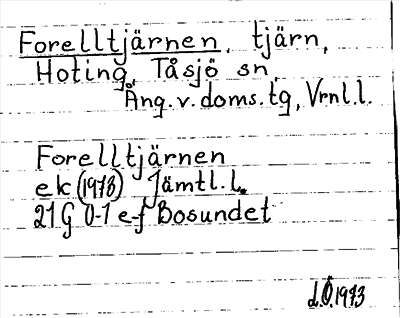 Forelltjärnen, tjärn,
Hoting, Tåsjö sn,
Ång. v. doms. tg, Vrnl.l.
Forelltjärnen
ek (1973) Jämtl. l.
21 G 0-1 e-f Bosundet
d.Ö. 1973